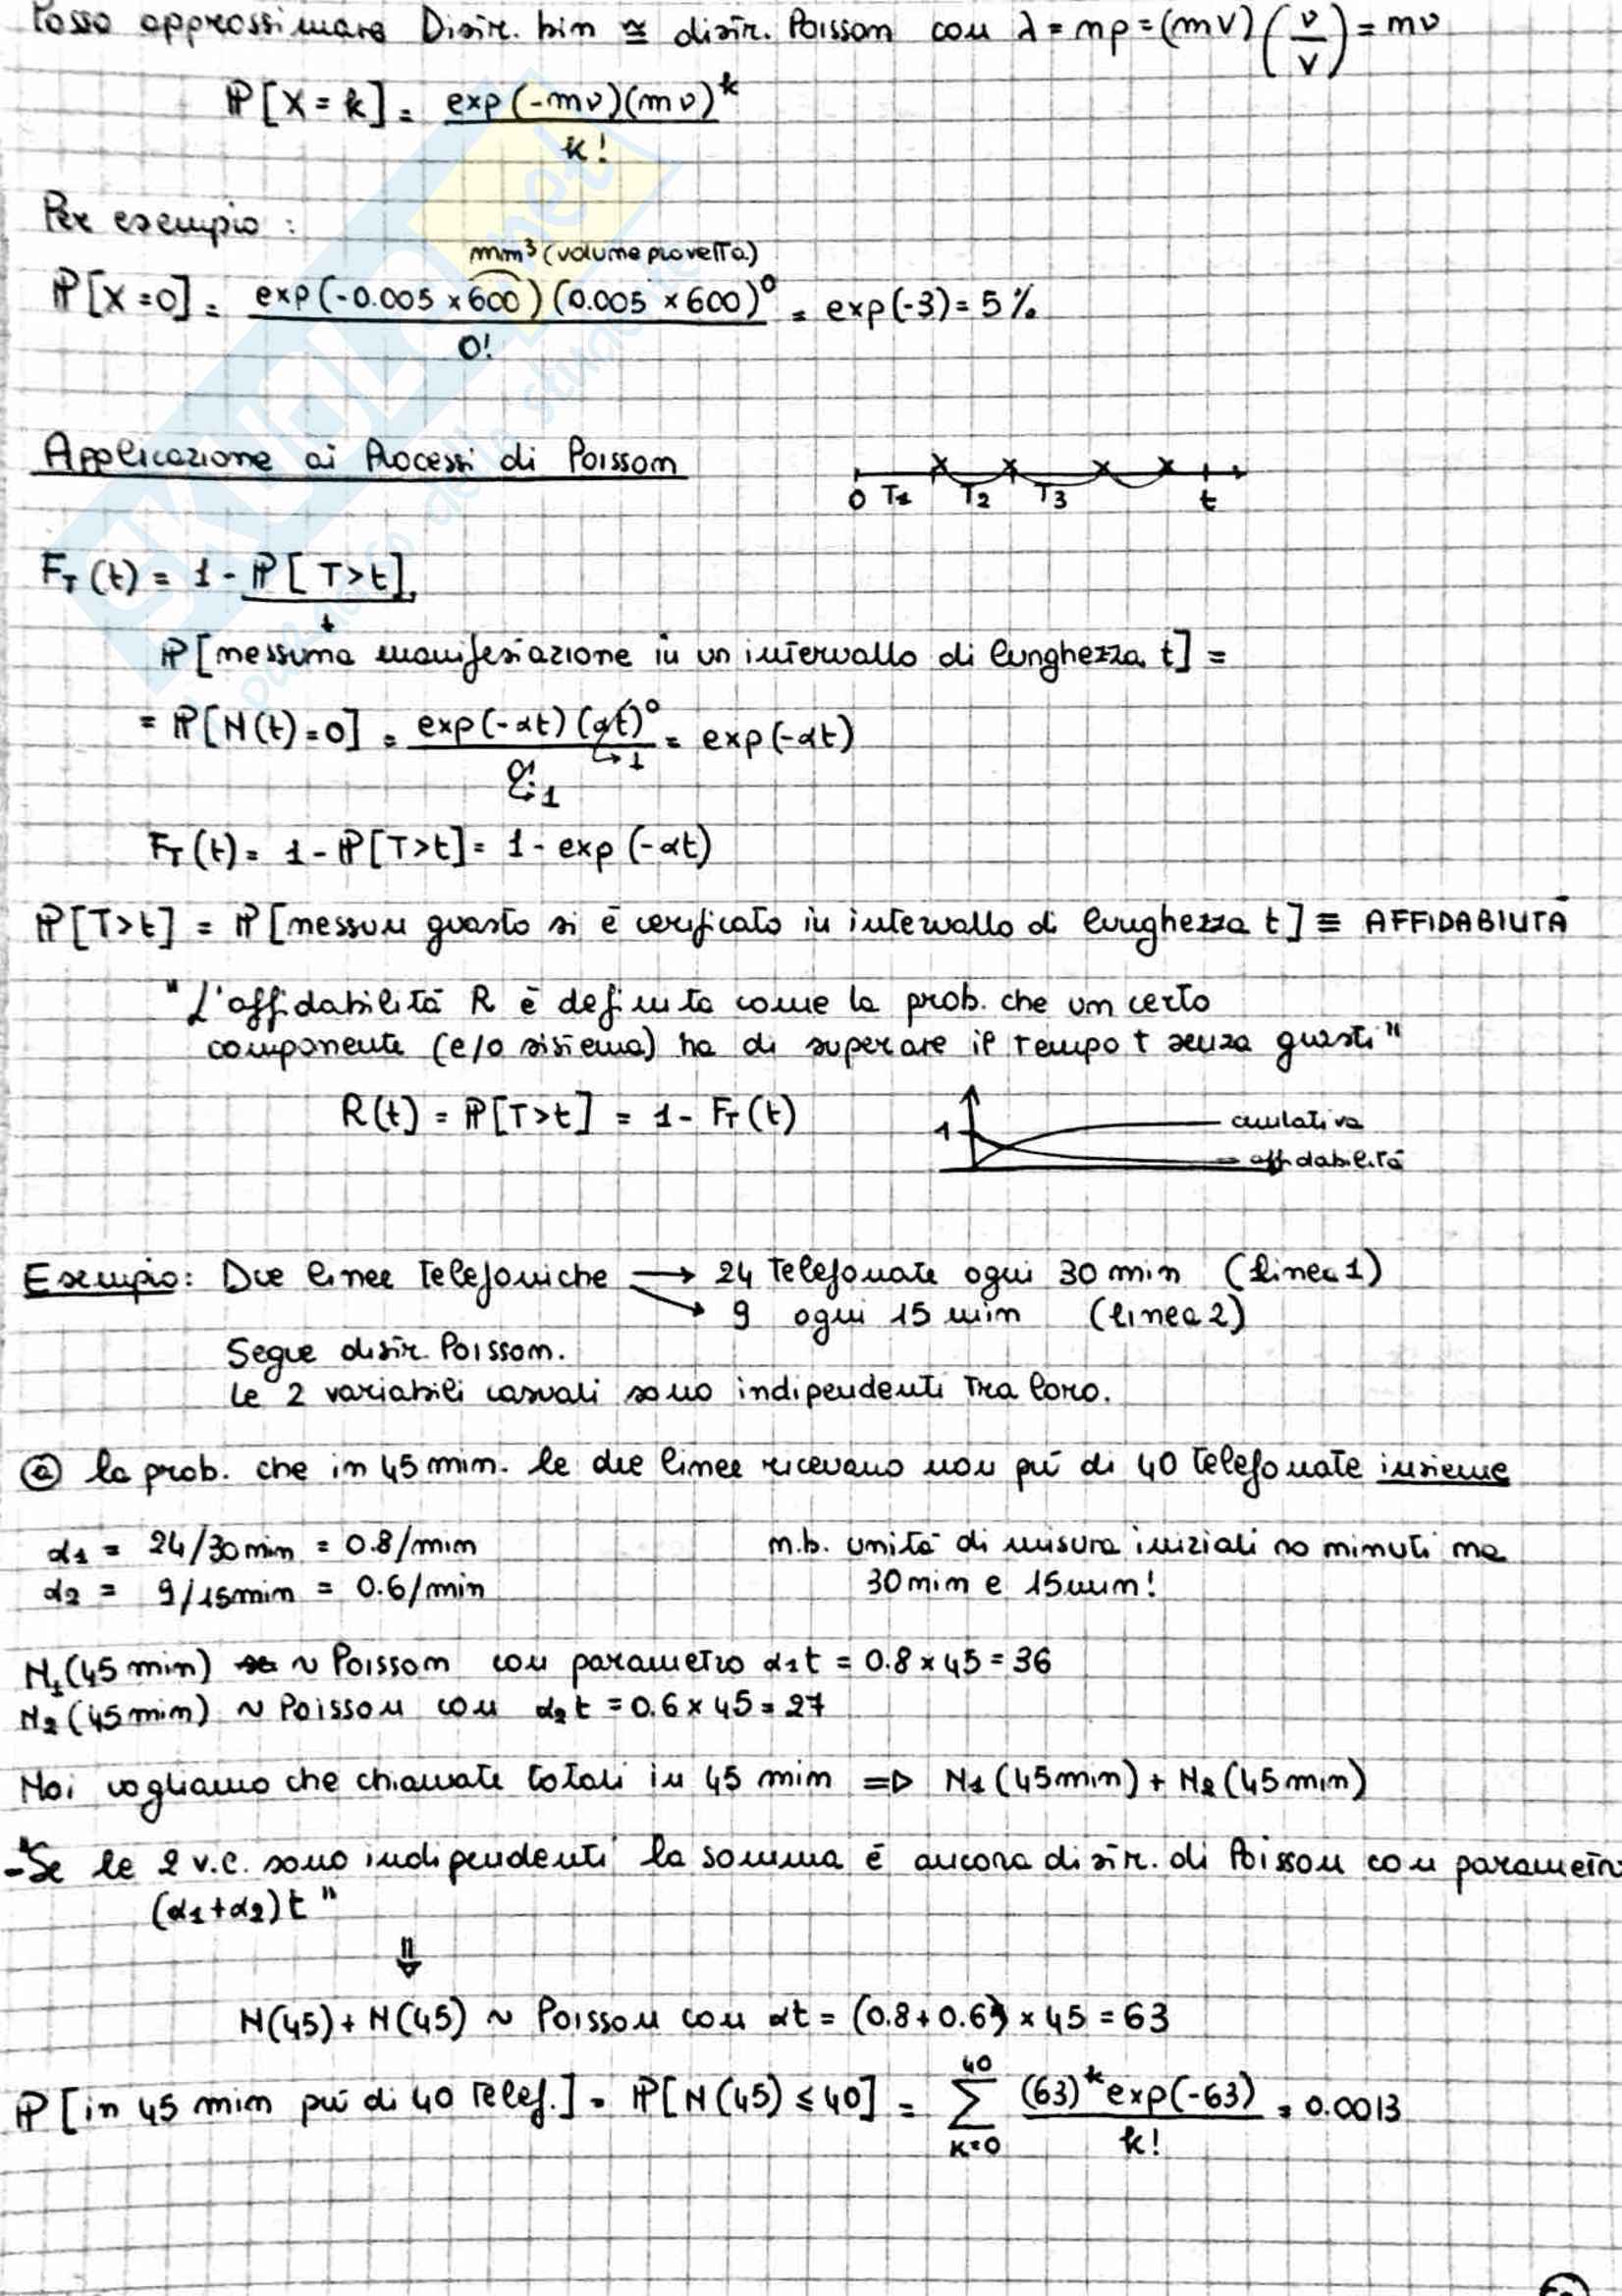 Posso approssimare Distr. bin ≅ distr. Poisson con λ = np = (mV)(v/V) = mv
P[X = k] = exp(-mv)(mv)^k / k!
Per esempio :
mm³ (volume provetta)
P[X=0] = exp(-0.005 × 600)(0.005 × 600)^0 / 0! = exp(-3) = 5%
Applicazione ai Processi di Poisson
0 T1 T2 T3 t
F_T(t) = 1 - P[T>t]
P[nessuna manifestazione in un intervallo di lunghezza t] =
= P[N(t)=0] = exp(-αt)(αt)^0 / 0! = exp(-αt)
↳ 1
↳ 1
F_T(t) = 1 - P[T>t] = 1 - exp(-αt)
P[T>t] = P[nessun guasto si è verificato in intervallo di lunghezza t] ≡ AFFIDABILITÀ
"L'affidabilità R è definita come la prob. che un certo
componente (e/o sistema) ha di superare il tempo t senza guasti"
R(t) = P[T>t] = 1 - F_T(t)
1
cumulativa
affidabilità
Esempio: Due linee telefoniche → 24 telefonate ogni 30 min (linea 1)
→ 9 ogni 15 min (linea 2)
Segue distr. Poisson.
Le 2 variabili casuali sono indipendenti tra loro.
ⓐ la prob. che in 45 min. le due linee ricevano non più di 40 telefonate insieme
α1 = 24/30min = 0.8/min
n.b. unità di misura iniziali no minuti ma
α2 = 9/15min = 0.6/min
30min e 15min!
N1(45 min) ~ Poisson con parametro α1t = 0.8 × 45 = 36
N2(45min) ~ Poisson con α2t = 0.6 × 45 = 27
Noi vogliamo che chiamate totali in 45 min => N1(45min) + N2(45min)
- "Se le 2 v.c. sono indipendenti la somma è ancora distr. di Poisson con parametro
(α1+α2)t"
⇓
N(45) + N(45) ~ Poisson con αt = (0.8 + 0.6) × 45 = 63
P[in 45 min più di 40 telef.] = P[N(45) ≤ 40] = Σ_{k=0}^{40} (63)^k exp(-63) / k! = 0.0013